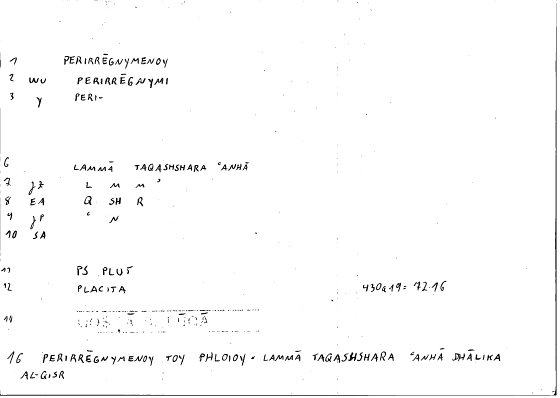 1 PERIRRĒGNYMENOY
2 WU PERIRRĒGNYMI
3 Y PERI-
6 LAMMĀ TAQASHSHARA ʿANHĀ
7 JZ L M M ʾ
8 EA Q SH R
9 JP ʿ N
10 SA
11 PS PLUT
12 PLACITA 430a19 = 72.16
14
16 PERIRRĒGNYMENOY TOY PHLOIOY = LAMMĀ TAQASHSHARA ʿANHĀ DHĀLIKA
AL-QISR